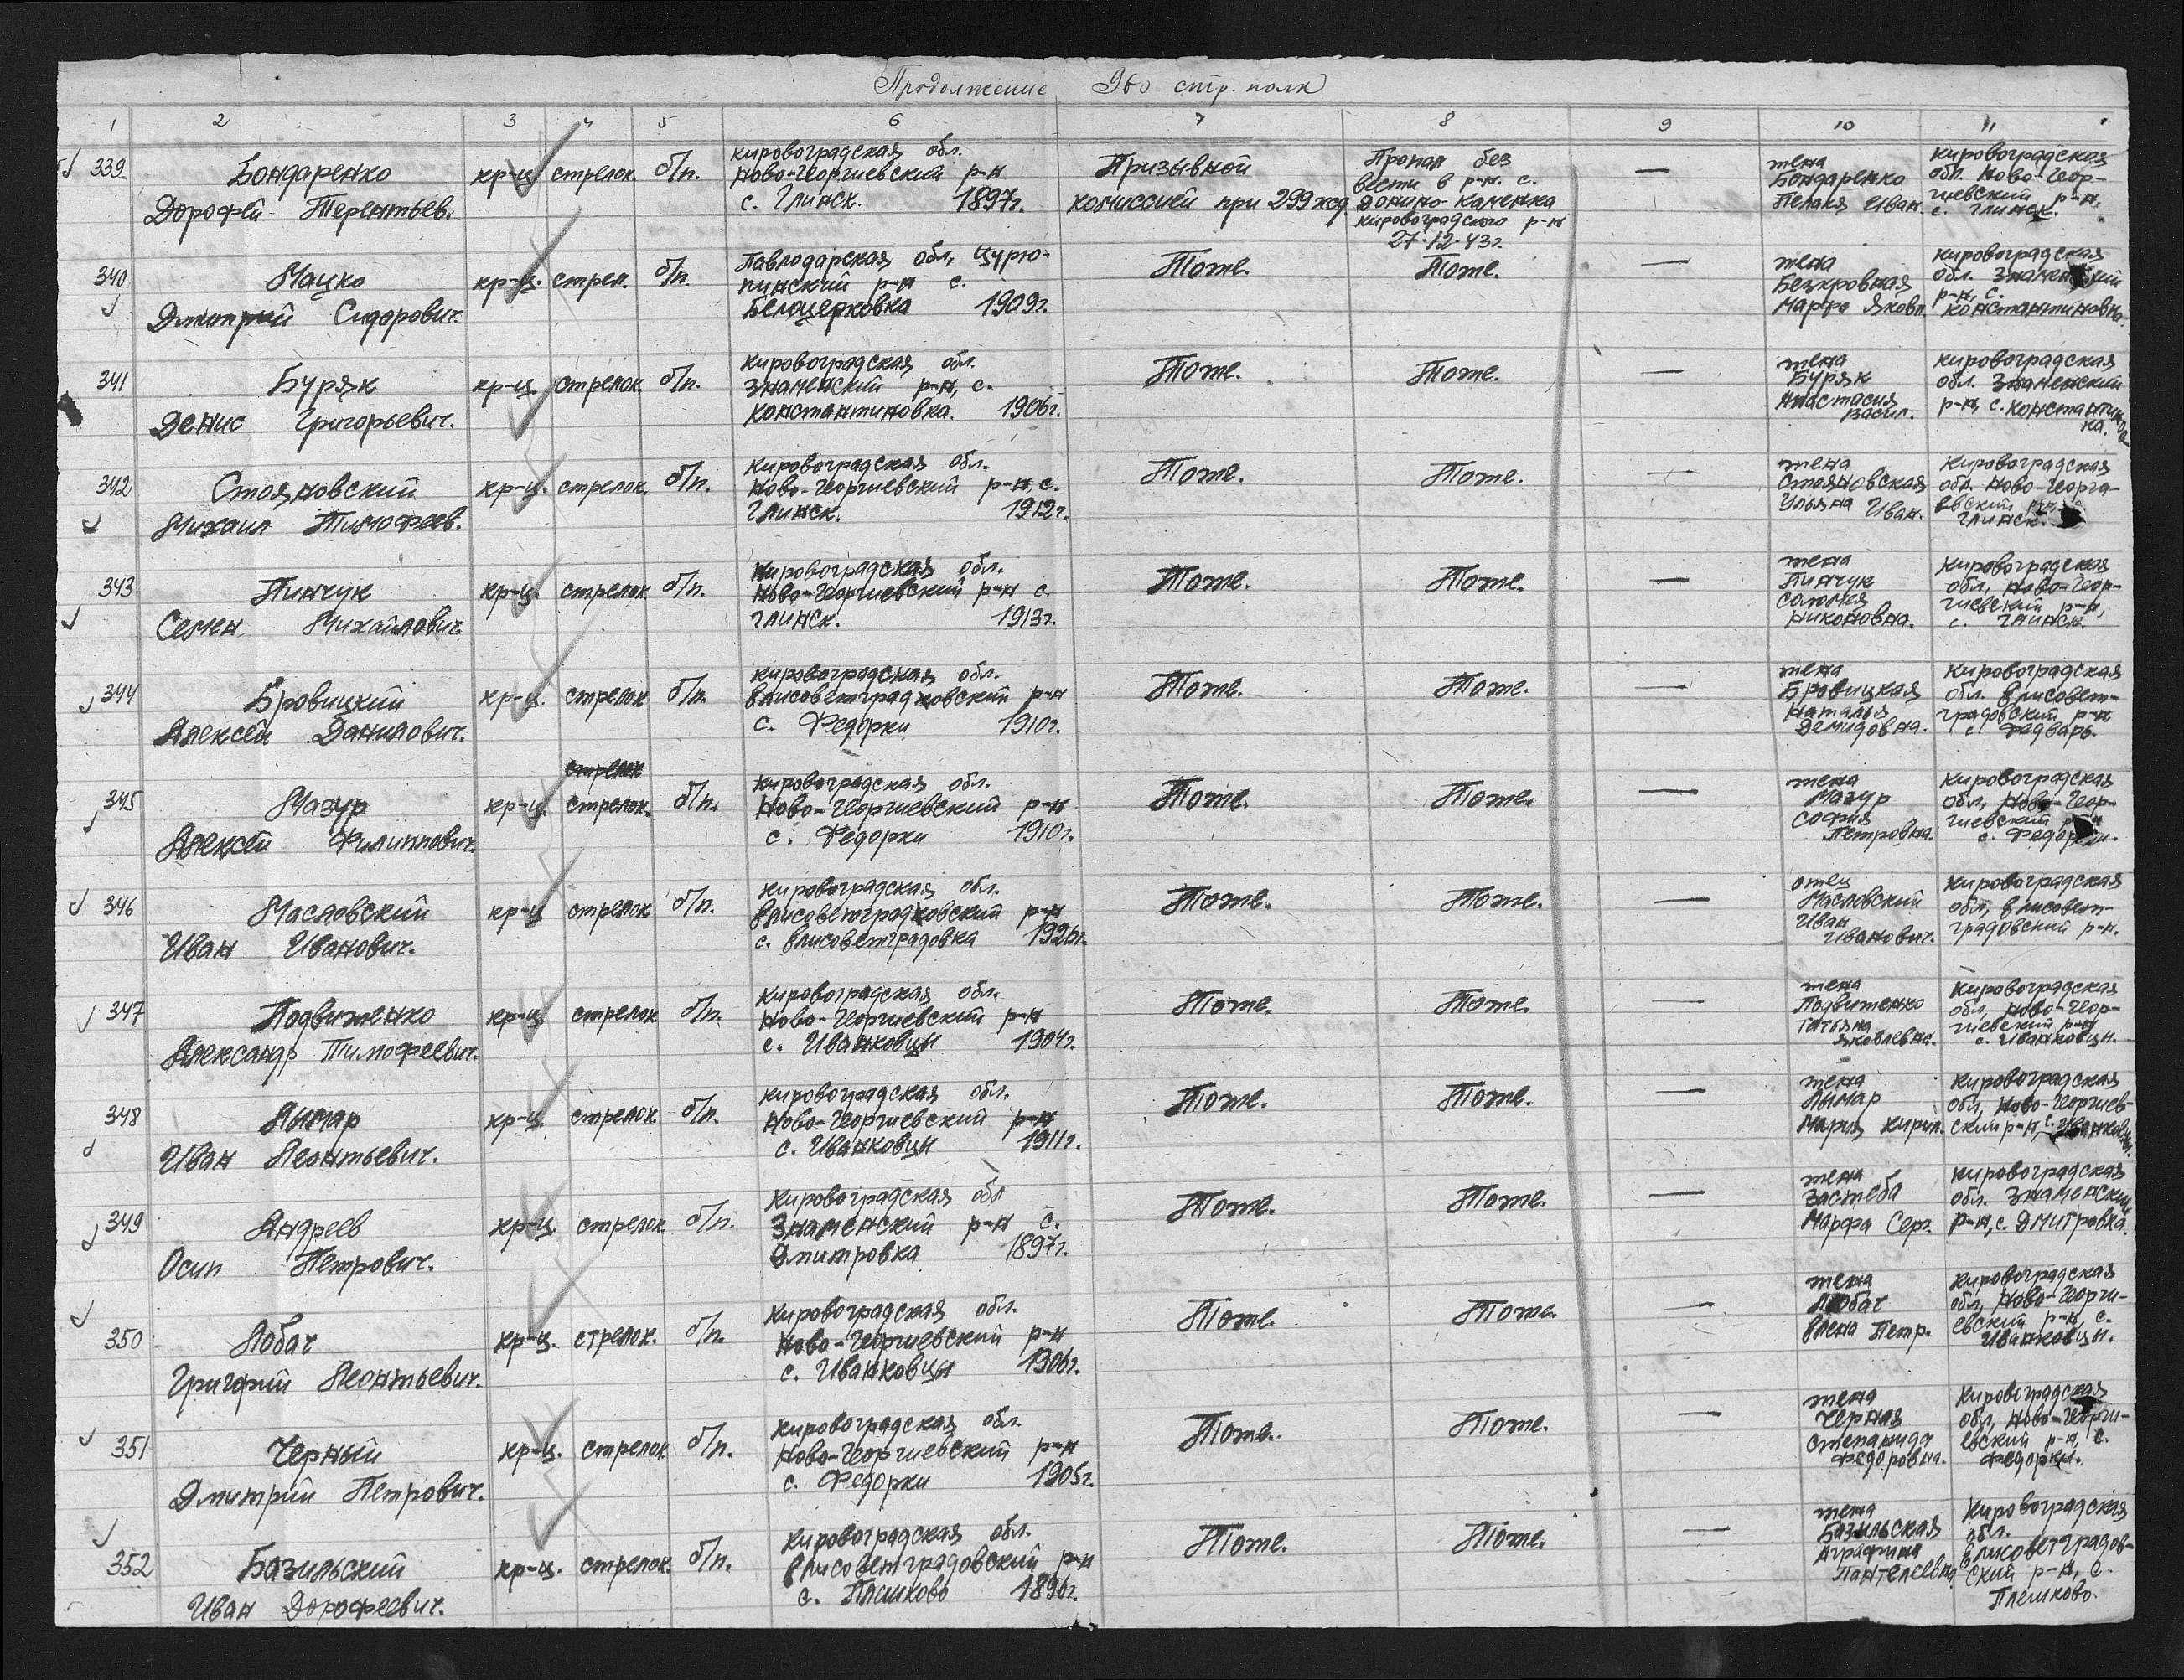 Продолжение 960 стр. полк
1 2 3 4 5 6 7 8 9 10 11
339 Бондаренко Дорофей Терентьев. кр-ц стрелок б/п. Кировоградская обл. Ново-Георгиевский р-н с. Глинск. 1897г. Призывной комиссией при 299 жд. Пропал без вести в р-н. с. Донино-Каменка Кировоградского р-н 27.12.43г. — жена Бондаренко Пелагя Иван. Кировоградская обл. Ново-Георгиевский р-н, с. Глинск.
340 Мацко Дмитрий Сидорович. кр-ц. стрел. б/п. Павлодарская обл, Цурюпинский р-н с. Белоцерковка 1909г. Тоже. Тоже. — жена Безкровная Марфа Яковл. Кировоградская обл. Знаменский р-н, с. Константиновка.
341 Буряк Денис Григорьевич. кр-ц стрелок б/п. Кировоградская обл. Знаменский р-н, с. Константиновка. 1906г. Тоже. Тоже. — жена Буряк Анастасия Васил. Кировоградская обл. Знаменский р-н, с. Константиновка.
342 Стояновский Михаил Тимофеев. кр-ц. стрелок. б/п. Кировоградская обл. Ново-Георгиевский р-н, с. Глинск. 1912г. Тоже. Тоже. — жена Стояновская Ульяна Иван. Кировоградская обл. Ново-Георгиевский р-н с. Глинск.
343 Пинчук Семен Михайлович. кр-ц. стрелок б/п. Кировоградская обл. Ново-Георгиевский р-н с. Глинск. 1913г. Тоже. Тоже. — жена Пинчук Соломея Никоновна. Кировоградская обл, Ново-Георгиевский р-н, с. Глинск.
344 Бровицкий Алексей Данилович. кр-ц. стрелок б/п. Кировоградская обл. Елисоветградковский р-н с. Федорки 1910г. Тоже. Тоже. — жена Бровицкая Наталья Демидовна. Кировоградская обл. Елисоветградовский р-н с. Федварь.
345 Мазур Алексей Филиппович. кр-ц. стрелок стрелок. б/п. Кировоградская обл. Ново-Георгиевский р-н с. Федорки 1910г. Тоже. Тоже. — жена Мазур София Петровна. Кировоградская обл, Ново-Георгиевский р-н с. Федорки.
346 Масловский Иван Иванович. кр-ц стрелок б/п. Кировоградская обл. Елисоветградковский р-н с. Елисоветградовка 1926г. Тоже. Тоже. — отец Масловский Иван Иванович. Кировоградская обл, Елисоветградовский р-н.
347 Подвиженко Александр Тимофеевич. кр-ц. стрелок б/п. Кировоградская обл. Ново-Георгиевский р-н с. Иванковцы 1904г. Тоже. Тоже. — жена Подвиженко Татьяна Яковлевна. Кировоградская обл, Ново-Георгиевский р-н с. Иванковцы.
348 Лымар Иван Леонтьевич. кр-ц. стрелок. б/п. Кировоградская обл. Ново-Георгиевский р-н с. Иванковцы 1911г. Тоже. Тоже. — жена Лымар Мария Кирил. Кировоградская обл, Ново-Георгиевский р-н, с. Иванковцы.
349 Андреев Осип Петрович. кр-ц. стрелок б/п. Кировоградская обл Знаменский р-н с. Дмитровка 1897г. Тоже. Тоже. — жена Застеба Марфа Серг. Кировоградская обл. Знаменский р-н, с. Дмитровка.
350 Лобач Григорий Леонтьевич. кр-ц. стрелок. б/п. Кировоградская обл. Ново-Георгиевский р-н с. Иванковцы 1906г. Тоже. Тоже. — жена Лобач Елена Петр. Кировоградская обл, Ново-Георгиевский р-н, с. Иванковцы.
351 Черный Дмитрий Петрович. кр-ц. стрелок б/п. Кировоградская обл. Ново-Георгиевский р-н с. Федорки 1905г. Тоже. Тоже. — жена Черная Степанида Федоровна. Кировоградская обл, Ново-Георгиевский р-н, с. Федорки.
352 Базильский Иван Дорофеевич. кр-ц. стрелок. б/п. Кировоградская обл. Елисоветградовский р-н с. Плешково 1896г. Тоже. Тоже. — жена Базильская Аграфина Пантелеевна. Кировоградская обл. Елисоветградовский р-н, с. Плешково.